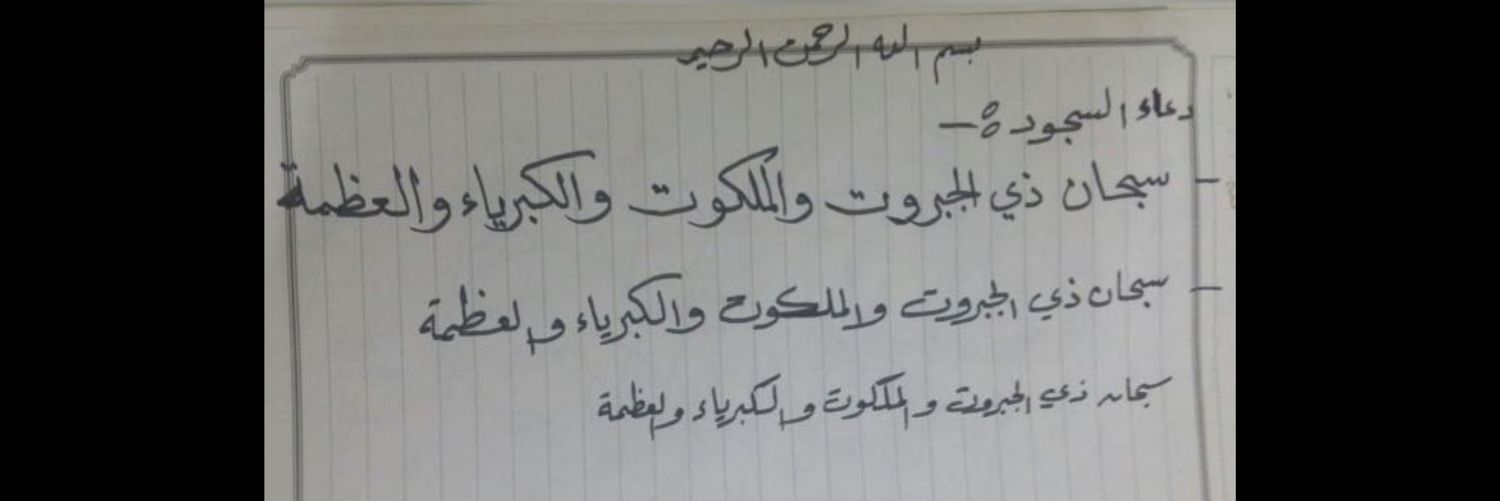 بسم الله الرحمن الرحيم
دعاء السجود :-
- سبحان ذي الجبروت والملكوت والكبرياء والعظمة
- سبحان ذي الجبروت والملكوت والكبرياء والعظمة
سبحان ذي الجبروت والملكوت والكبرياء والعظمة